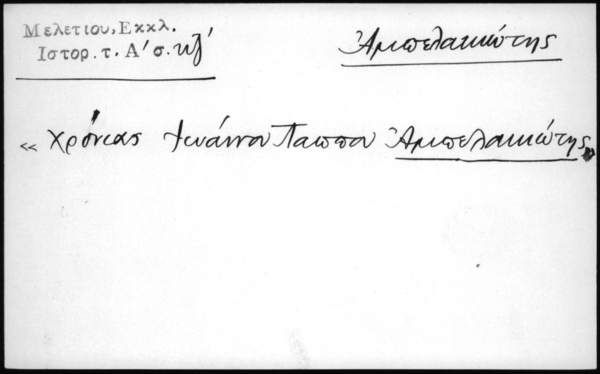 Μελετίου, Εκκλ.
Ιστορ. τ. Α' σ. κζ'
Ἀμπελακιώτης
« Χρόνιας Ἰωάννα Παππα Ἀμπελακιώτης »